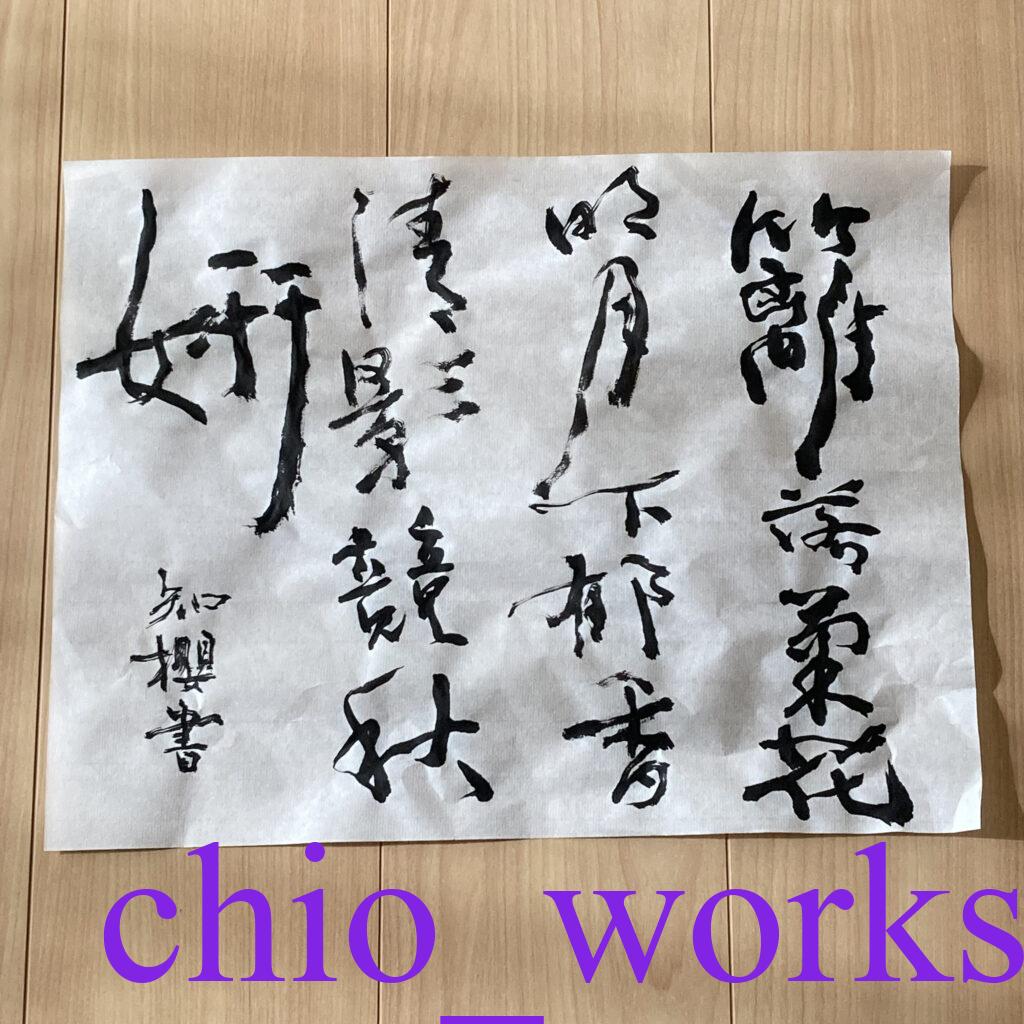 籬落菊花
明月下郁香
清影競秋
妍
知櫻書
chio_works